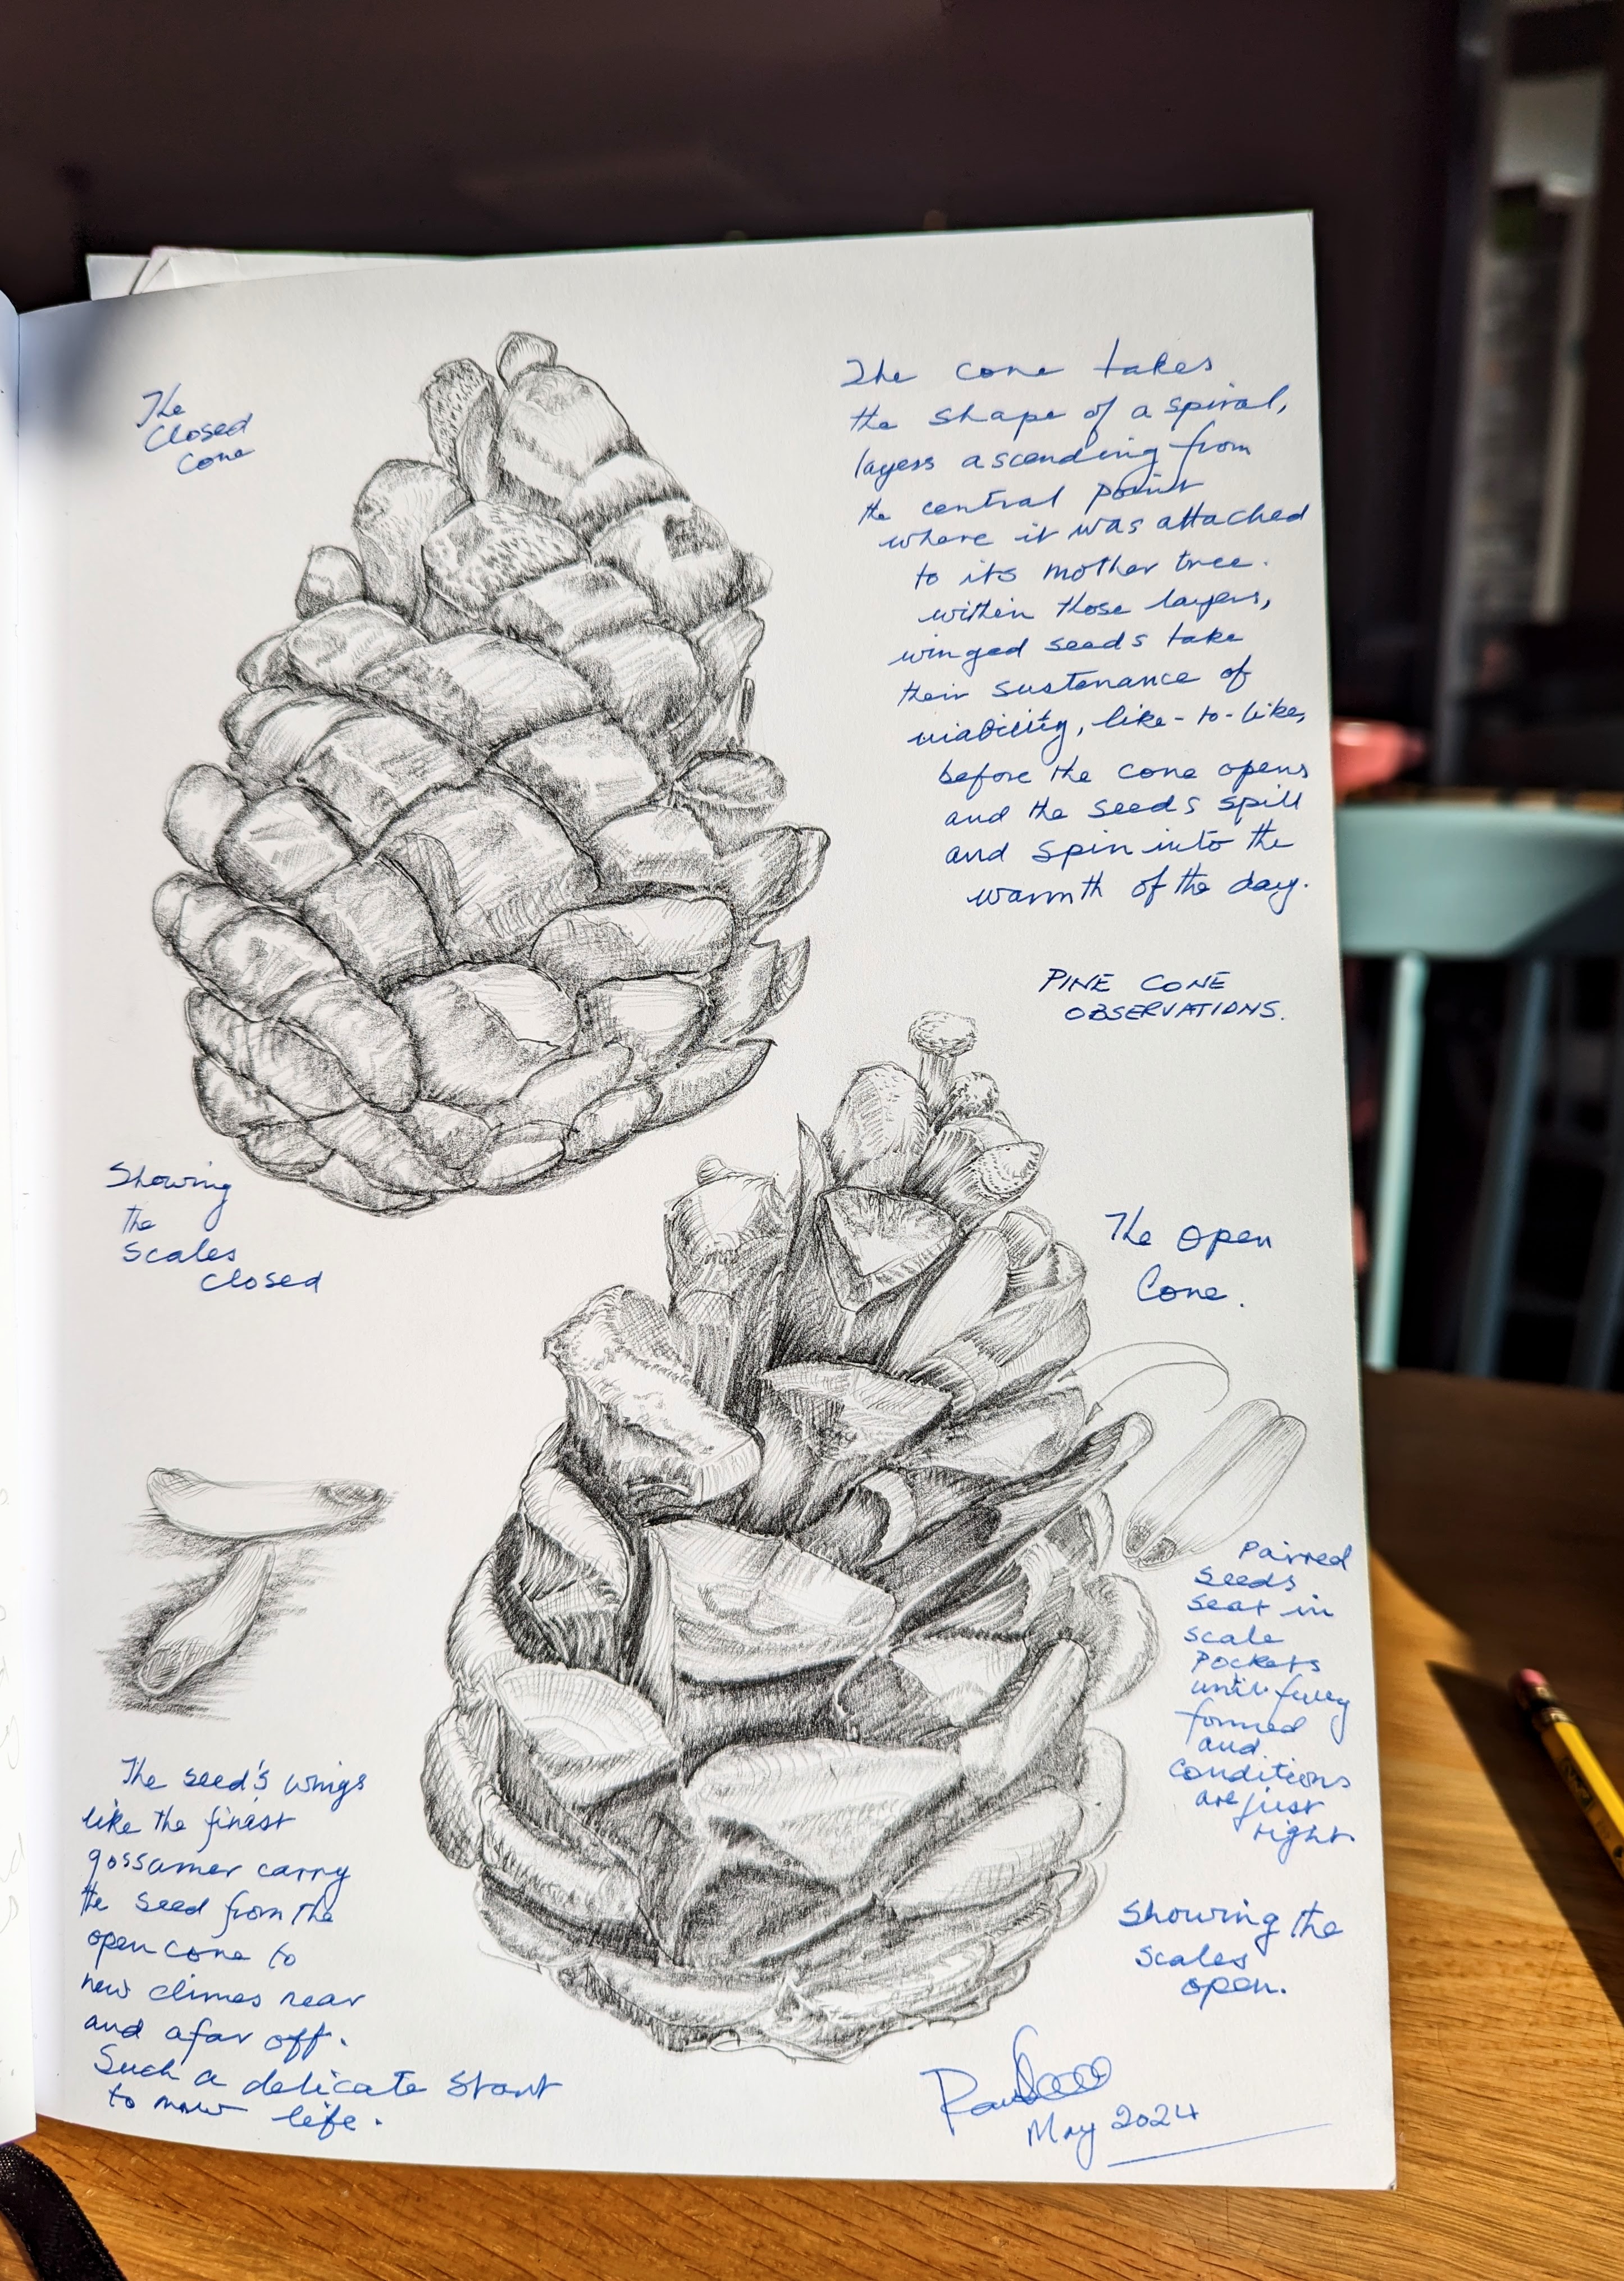 The
Closed
Cone
The cone takes
the shape of a spiral,
layers ascending from
the central point
where it was attached
to its mother tree.
within those layers,
winged seeds take
their sustenance of
viability, like-to-like,
before the cone opens
and the seeds spill
and spin into the
warmth of the day.
PINE CONE
OBSERVATIONS.
Showing
the
Scales
closed
The Open
Cone.
Paired
Seeds
seat in
scale
pockets
until fully
formed
and
conditions
are just
right.
The seed's wings
like the finest
gossamer carry
the seed from the
open cone to
new climes near
and afar off.
Such a delicate start
to new life.
Showing the
scales
open.
May 2024